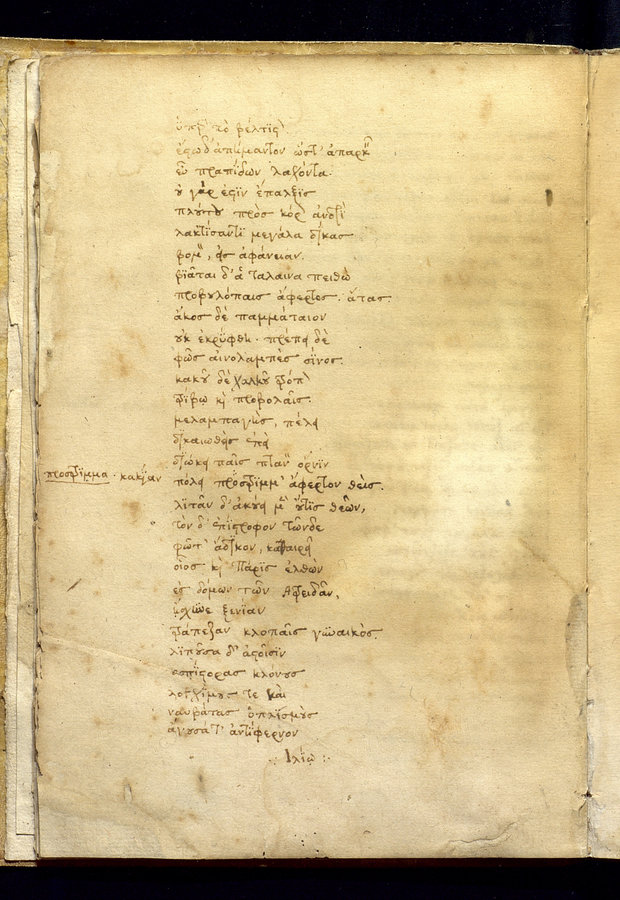 ὑπὲρ τὸ βέλτιστον.
ἔστω δ' ἀπήμαντον ὥστ' ἀπαρκεῖν
εὖ πραπίδων λαχόντα.
οὐ γάρ ἐστιν ἔπαλξις
πλούτου πρὸς κόρον ἀνδρὶ
λακτίσαντι μεγάλα δίκας
βωμὸν, εἰς ἀφάνειαν.
βιᾶται δ' ἁ τάλαινα πειθὼ
προβουλόπαις ἄφερτος. ἄτας.
ἄκος δὲ παμμάταιον
οὐκ ἐκρύφθη. πρέπει δὲ
φῶς αἰνολαμπὲς σίνος.
κακοῦ δὲ χαλκοῦ τρόπον
τρίβῳ καὶ προβολαῖς.
μελαμπαγὴς, πέλει
δικαιωθεὶς ἐπεὶ
διώκει παῖς πτανὸν ὄρνιν
πρόστριμμα. κακίαν
πόλει πρόστριμμ' ἄφερτον θείς.
λιτᾶν δ' ἀκούει μὲν οὔτις θεῶν,
τὸν δ' ἐπίστροφον τῶνδε
φῶτ' ἄδικον, καθαιρεῖ
οἷος καὶ Πάρις ἐλθὼν
ἐς δόμων τῶν Ἀτρειδᾶν,
ᾔσχυνε ξενίαν
τράπεζαν κλοπαῖς γυναικός.
λιποῦσα δ' ἀστοῖσιν
ἀσπίστορας κλόνους
λογχίμους τε καὶ
ναυβάτας ὁπλισμοὺς
ἄγουσά τ' ἀντίφερνον
Ἰλίῳ